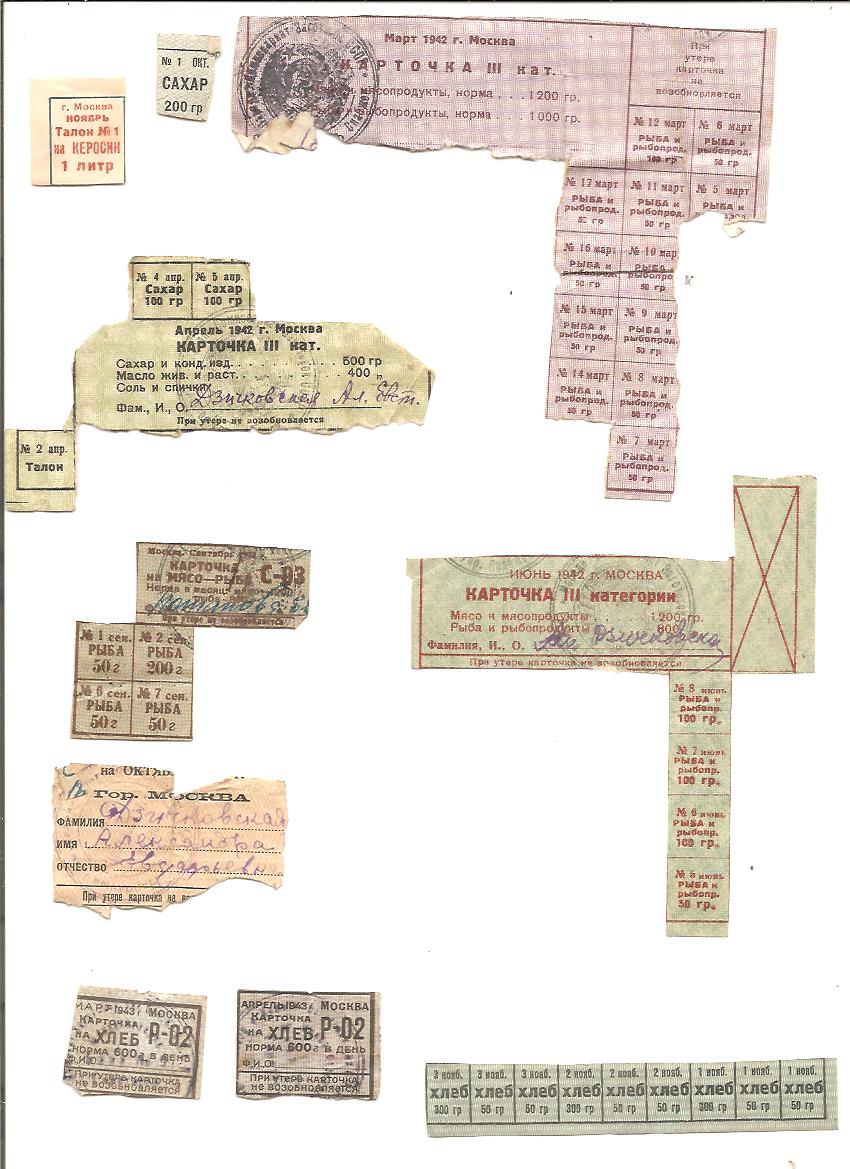 № 1 ОКТ.
САХАР
200 гр
г. Москва
НОЯБРЬ
Талон № 1
на КЕРОСИН
1 литр
Март 1942 г. Москва
КАРТОЧКА III кат.
мясопродукты, норма . . . 1200 гр.
рыбопродукты, норма . . . 1000 гр.
При
утере
карточка
не
возобновляется
№ 12 март
РЫБА и
рыбопрод.
100 гр
№ 6 март
РЫБА и
рыбопрод.
50 гр
№ 17 март
РЫБА и
рыбопрод.
50 гр
№ 11 март
РЫБА и
рыбопрод.
50 гр
№ 5 март
РЫБА и
№ 16 март
РЫБА и
рыбопрод.
50 гр
№ 10 мар
РЫБА и
рыбопрод.
50 гр
№ 15 март
РЫБА и
рыбопрод.
50 гр
№ 9 март
РЫБА и
рыбопрод.
50 гр
№ 14 март
РЫБА и
рыбопрод.
50 гр
№ 8 март
РЫБА и
рыбопрод.
50 гр
№ 7 март
РЫБА и
рыбопрод.
50 гр
№ 4 апр.
Сахар
100 гр
№ 5 апр.
Сахар
100 гр
Апрель 1942 г. Москва
КАРТОЧКА III кат.
Сахар и конд. изд. . . . . . 600 гр
Масло жив. и раст. . . . . . 400 „
Соль и спички
Фам., И., О. Дзичковская Ал. Евст.
При утере не возобновляется
№ 2 апр.
Талон
Москва. Сентябрь
КАРТОЧКА
на МЯСО—РЫБА С-03
Норма в месяц:
рыба
При утере не возобновляется
№ 1 сен.
РЫБА
50 г
№ 2 сен.
РЫБА
200 г
№ 6 сен.
РЫБА
50 г
№ 7 сен.
РЫБА
50 г
ИЮНЬ 1942 г. МОСКВА
КАРТОЧКА III категории
Мясо и мясопродукты . . . . . 1200 гр.
Рыба и рыбопродукты . . . . . 800
Фамилия, И., О. Дзичковска
При утере карточка не возобновляется
№ 8 июнь
РЫБА и
рыбопр.
100 гр.
№ 7 июнь
РЫБА и
рыбопр.
100 гр.
№ 6 июнь
РЫБА и
рыбопр.
100 гр.
№ 5 июнь
РЫБА и
рыбопр.
50 гр.
на ОКТЯБ
Гор. МОСКВА
ФАМИЛИЯ Дзичковская
ИМЯ Александра
ОТЧЕСТВО
При утере карточка не во
МАРТ 1943 г. МОСКВА
КАРТОЧКА
на ХЛЕБ Р-02
НОРМА 600 г в ДЕНЬ
Ф.И.О.
При утере карточка
не возобновляется
АПРЕЛЬ 1943 г. МОСКВА
КАРТОЧКА
на ХЛЕБ Р-02
НОРМА 600 г в ДЕНЬ
Ф.И.О.
При утере карточка
не возобновляется
3 нояб. 3 нояб. 3 нояб. 2 нояб. 2 нояб. 2 нояб. 1 нояб. 1 нояб. 1 нояб.
хлеб хлеб хлеб хлеб хлеб хлеб хлеб хлеб хлеб
300 гр 50 гр 50 гр 300 гр 50 гр 50 гр 300 гр 50 гр 50 гр